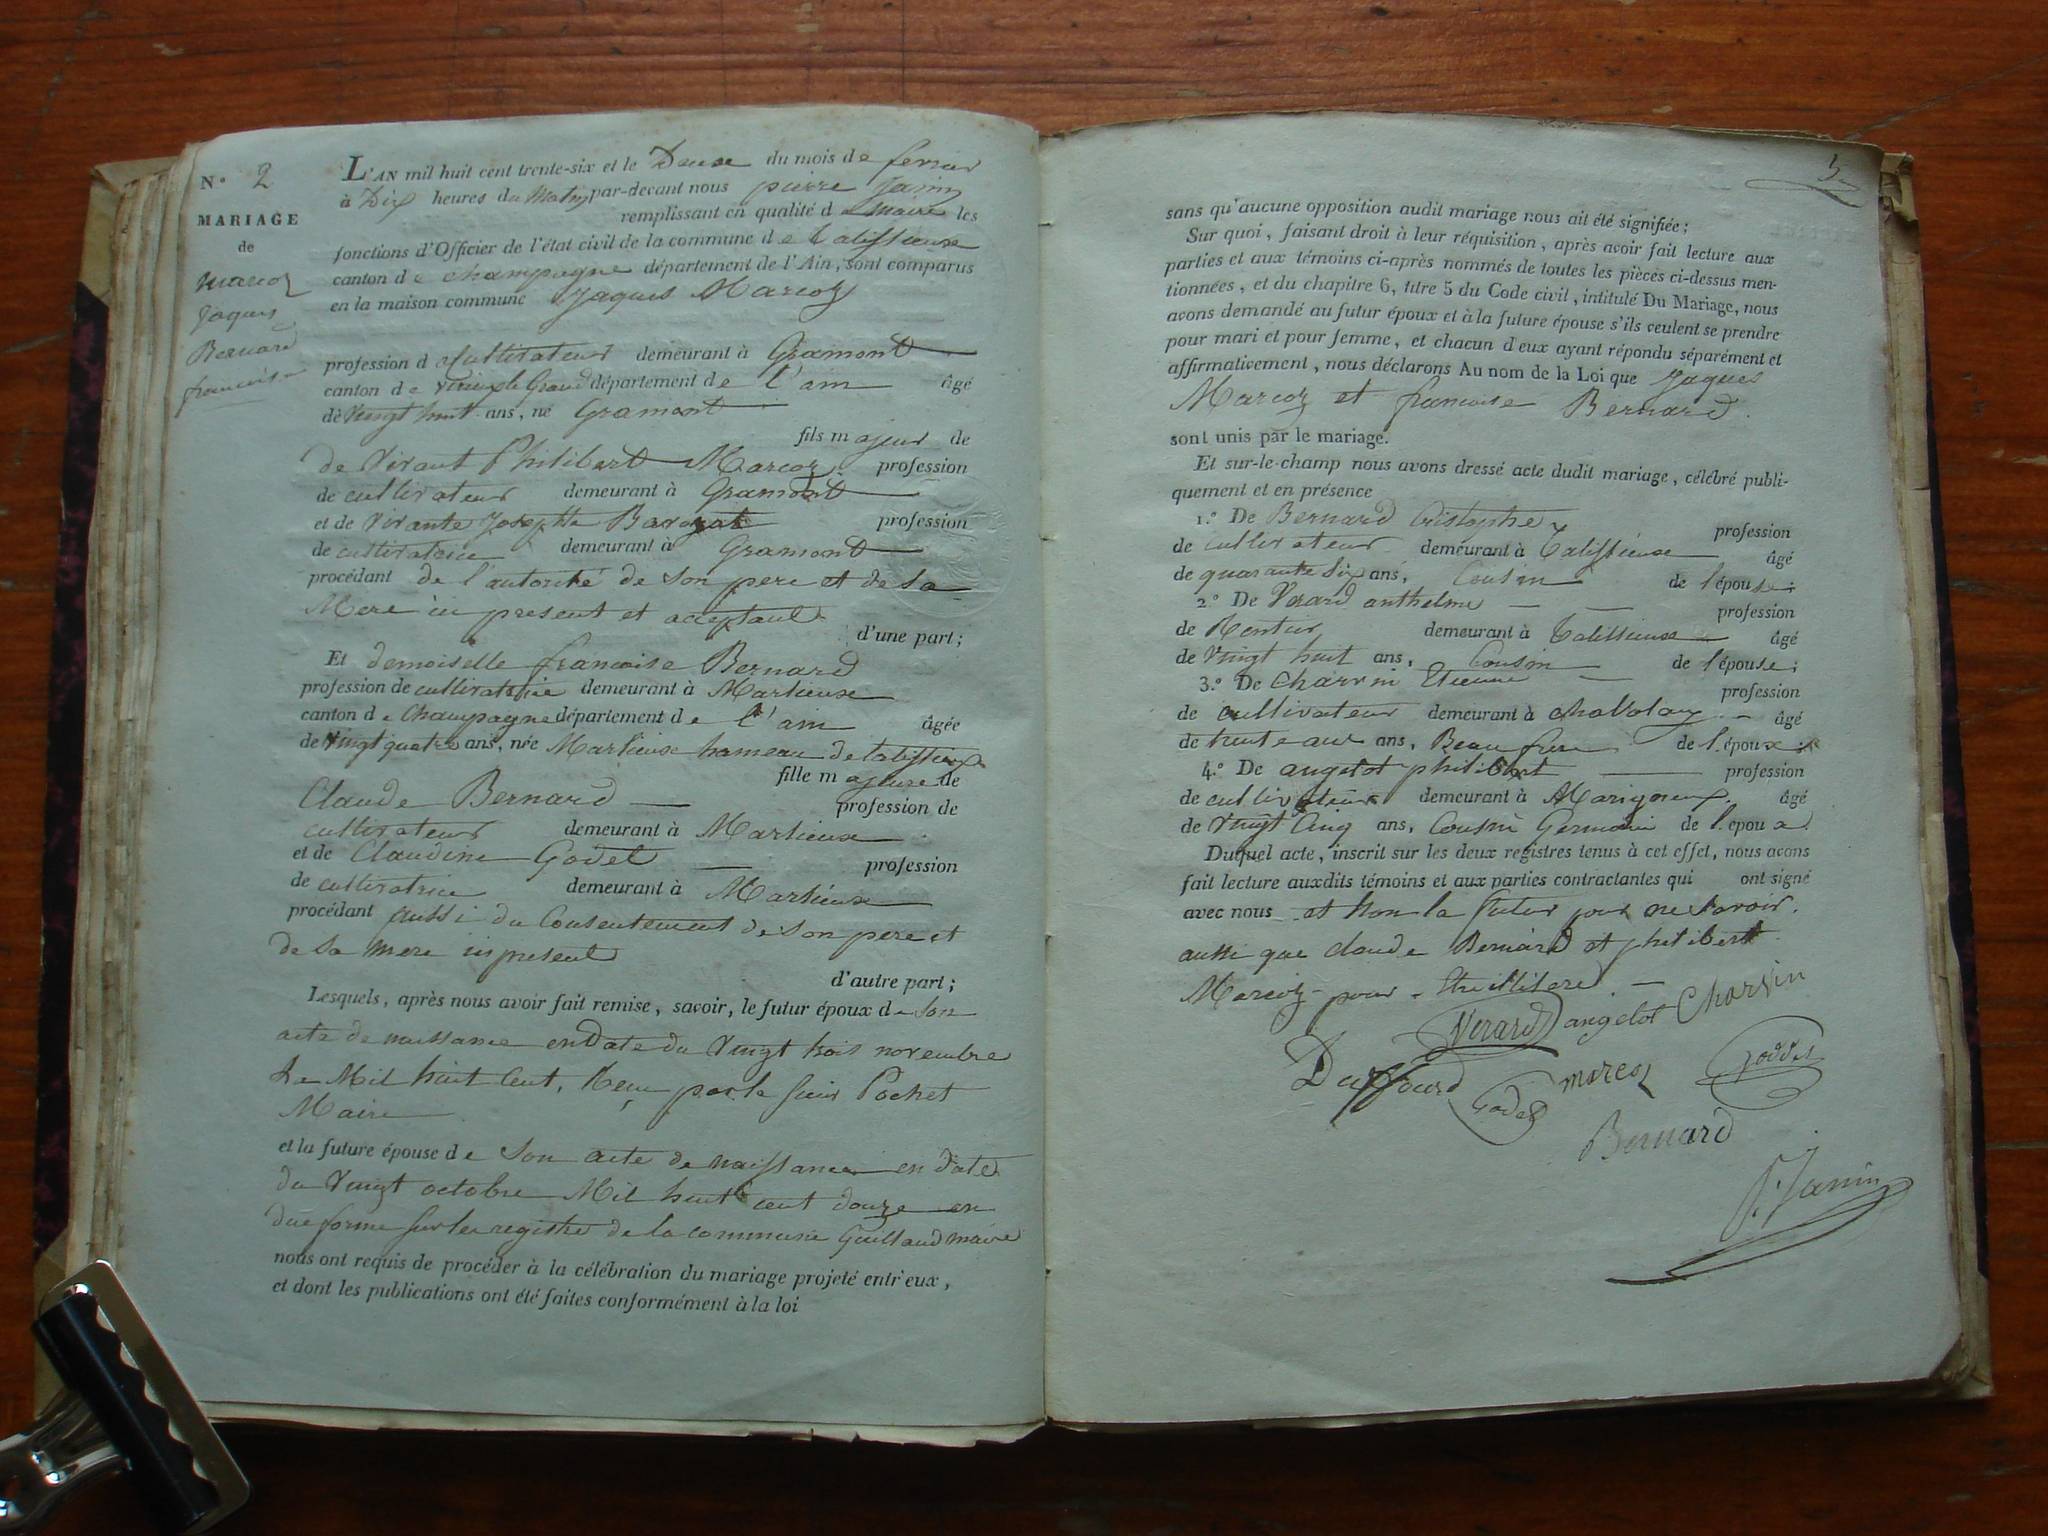 N.º 2
MARIAGE
de
Marcoz
Jaques
Bernard
francoise
L'AN mil huit cent trente-six et le Douse du mois de fevrier
à Dix heures du Matin par-devant nous pierre Janin
remplissant en qualité de Maire les
fonctions d'Officier de l'état civil de la commune de talissieuse
canton de champagne département de l'Ain, sont comparus
en la maison commune Jaques Marcoz
profession de Cultivateur demeurant à Gramont
canton de virieux le Grand département de l'ain âgé
de vingt huit ans, né Gramont
fils majeur de
de Vivant Philibert Marcoz profession
de cultivateur demeurant à Gramont
et de vivante Josephte profession
de cultivatrice demeurant à Gramont
procédant de l'autorité de son pere et de sa
Mere ici present et acceptant
d'une part;
Et demoiselle francoise Bernard
profession de cultivatrice demeurant à Marlieuse
canton de Champagne département de l'ain âgée
de vingt quatre ans, née Marlieuse hameau de talissieux
fille majeure de
Claude Bernard profession de
cultivateur demeurant à Marlieuse
et de Claudine Godet profession
de cultivatrice demeurant à Marlieuse
procédant aussi du Consentement de son pere et
de sa mere ici present
d'autre part;
Lesquels, après nous avoir fait remise, savoir, le futur époux de son
acte de naissance en Date du vingt trois novembre
de Mil huit Cent, par le sieur Pochet
Maire
et la future épouse de son acte de naissance en date
du vingt octobre Mil huit cent douze en
due forme sur les registre de la commune Guillaud maire
nous ont requis de procéder à la célébration du mariage projeté entr'eux,
et dont les publications ont été faites conformément à la loi
5
sans qu'aucune opposition audit mariage nous ait été signifiée;
Sur quoi, faisant droit à leur réquisition, après avoir fait lecture aux
parties et aux témoins ci-après nommés de toutes les pièces ci-dessus men-
tionnées, et du chapitre 6, titre 5 du Code civil, intitulé Du Mariage, nous
avons demandé au futur époux et à la future épouse s'ils veulent se prendre
pour mari et pour femme, et chacun d'eux ayant répondu séparément et
affirmativement, nous déclarons Au nom de la Loi que Jaques
Marcoz et francoise Bernard
sont unis par le mariage.
Et sur-le-champ nous avons dressé acte dudit mariage, célébré publi-
quement et en présence
1.º De Bernard Cristophe profession
de cultivateur demeurant à Talissieuse âgé
de quarante six ans, Cousin de l'épouse;
2.º De Verard anthelme profession
de Rentier demeurant à Talissieuse âgé
de Vingt huit ans, Cousin de l'épouse;
3.º De Charvin Etienne profession
de cultivateur demeurant à âgé
de trente ans, Beau frere de l'époux;
4.º De angelot philibert profession
de cultivateur demeurant à Marigneux âgé
de Vingt Cinq ans, Cousin Germain de l'époux
Duquel acte, inscrit sur les deux registres tenus à cet effet, nous avons
fait lecture auxdits témoins et aux parties contractantes qui ont signé
avec nous et non la futur pour ne savoir.
aussi que claude Bernard et philibert
Marcoz pour être illiteré.
Verard angelot Charvin
Duffourd Godet marcoz Goddet
Bernard
P. Janin